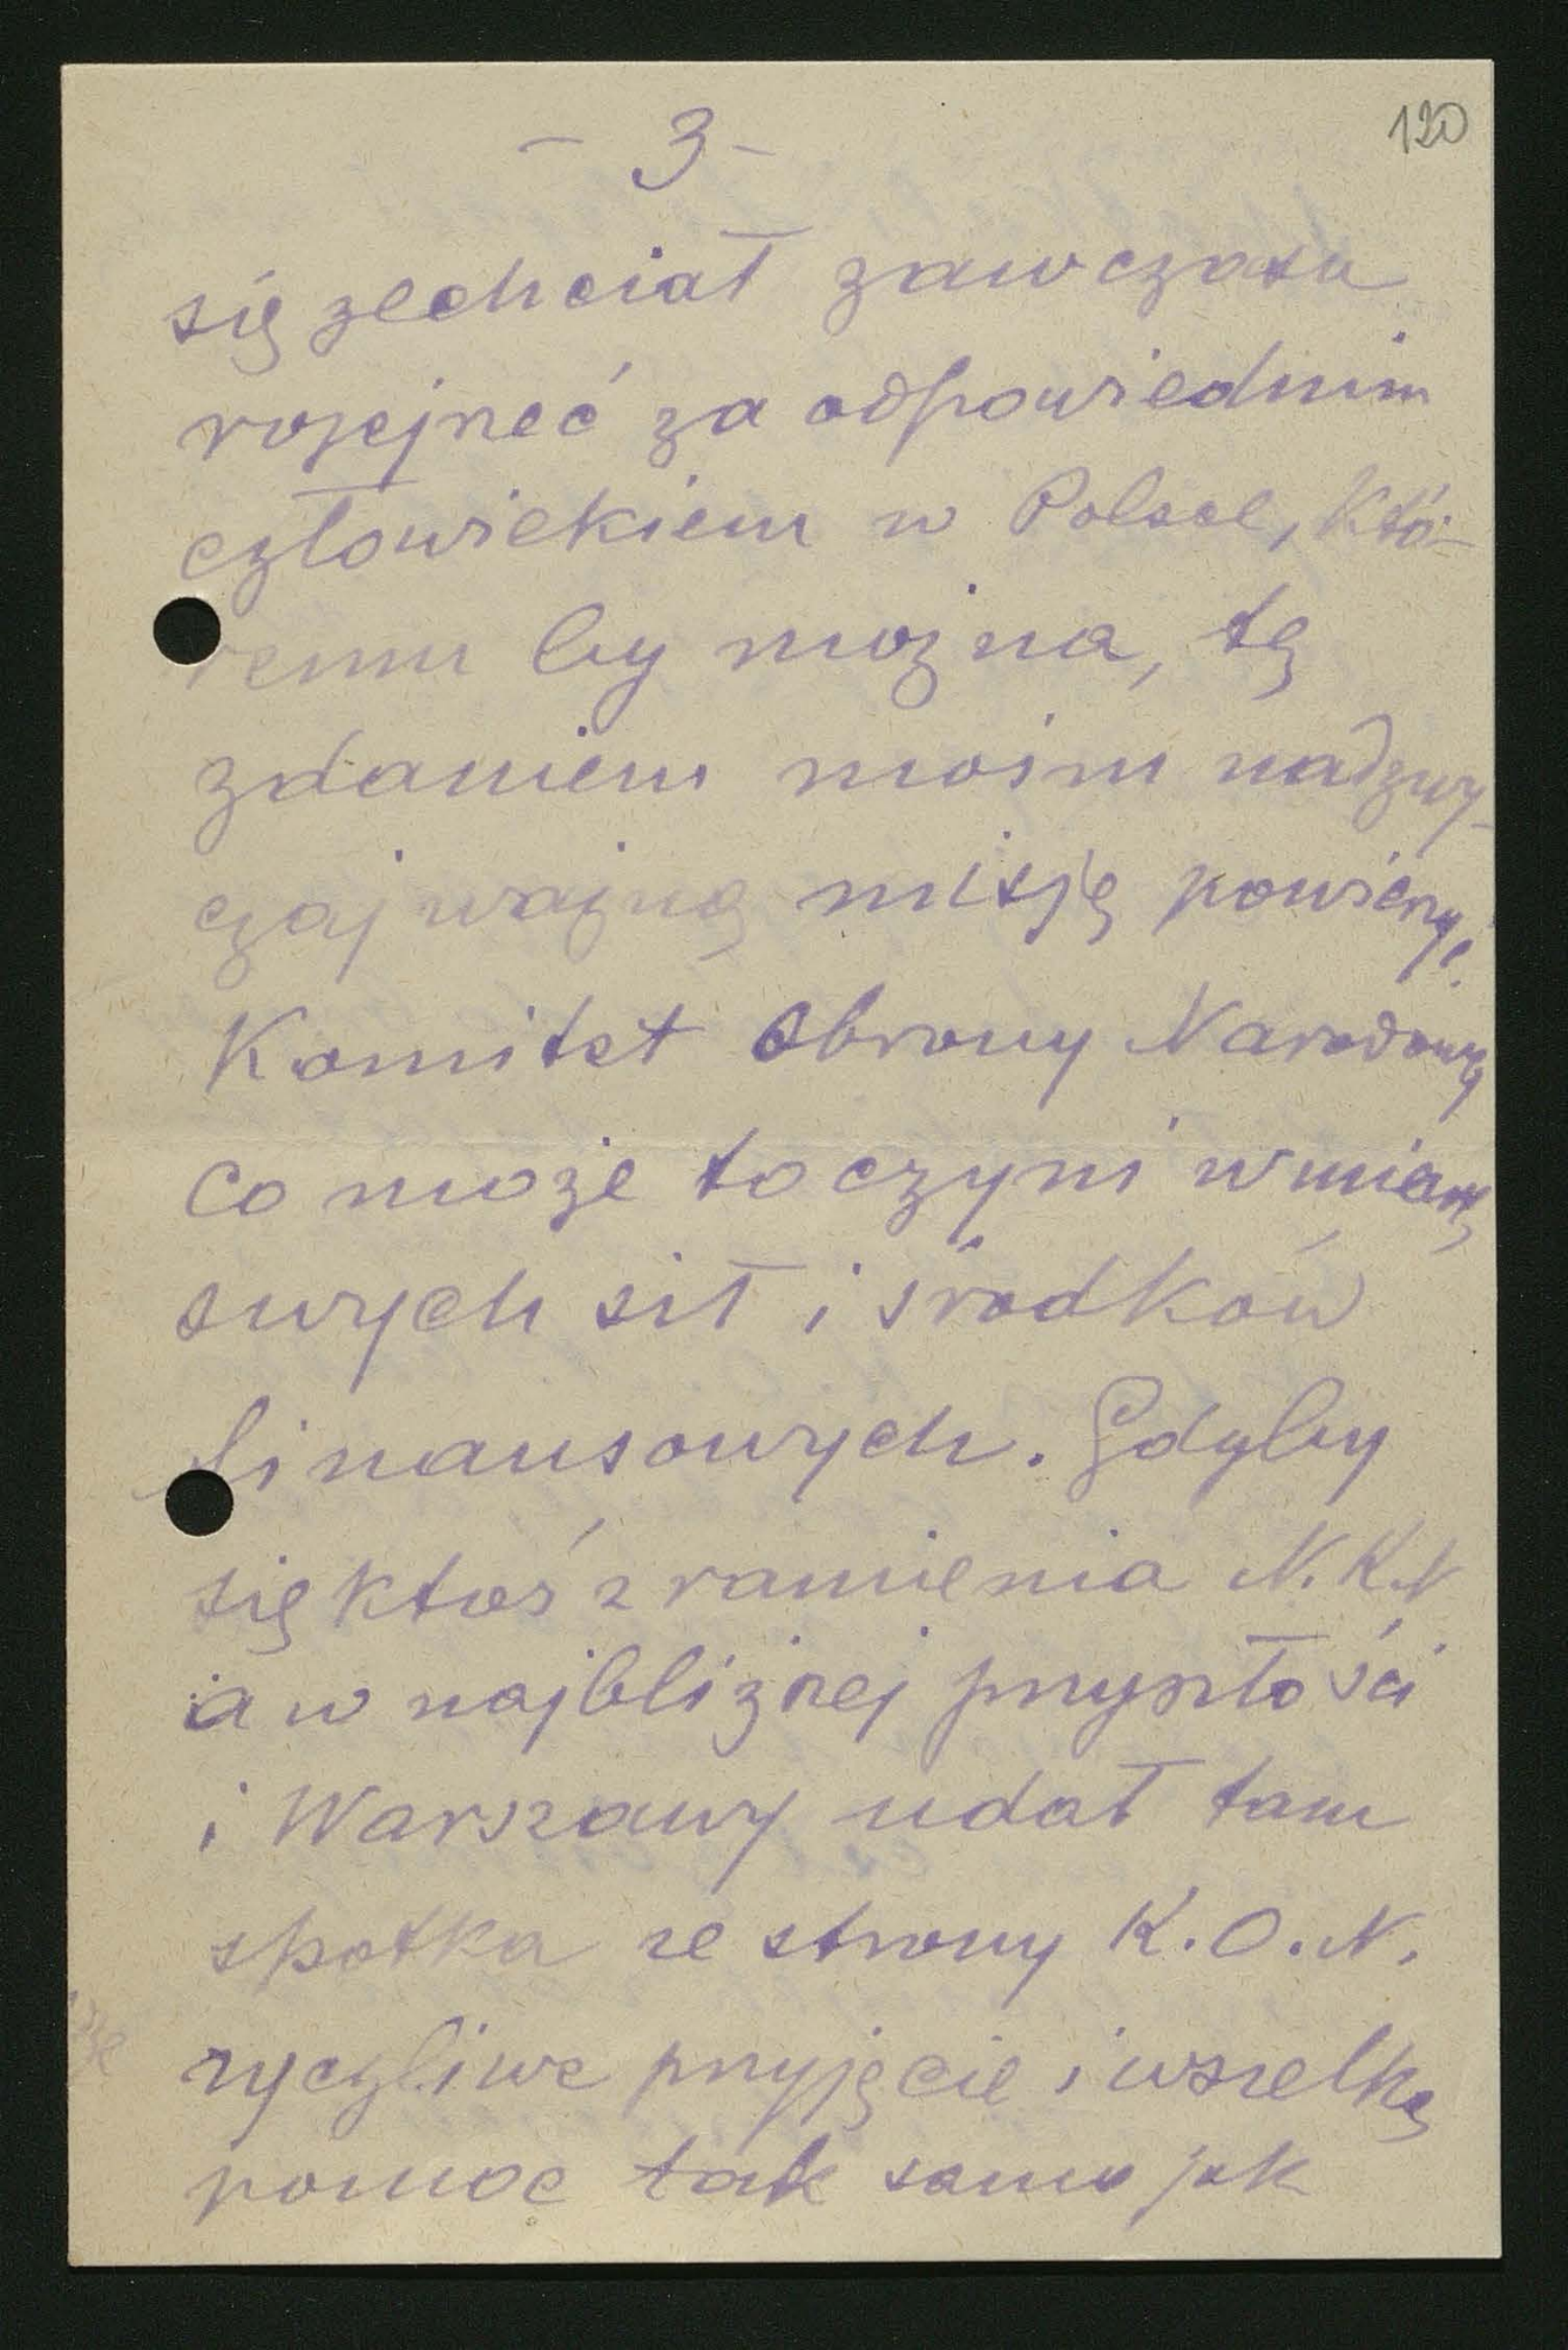 - 3 -
120
się zechciał zawczasu
rozejrzeć za odpowiednim
człowiekiem w Polsce, któ-
remu by można, tę
zdaniem moim nadzwy-
czaj ważną misję powierzyć.
Komitet Obrony Narodowej
co może to czyni w miarę
swych sił i środków
finansowych. Gdyby
się ktoś z ramienia N.K.N
a w najbliższej przyszłości
i Warszawy udał tam
spotka ze strony K.O.N.
życzliwe przyjęcie i wszelką
pomoc tak samo jak